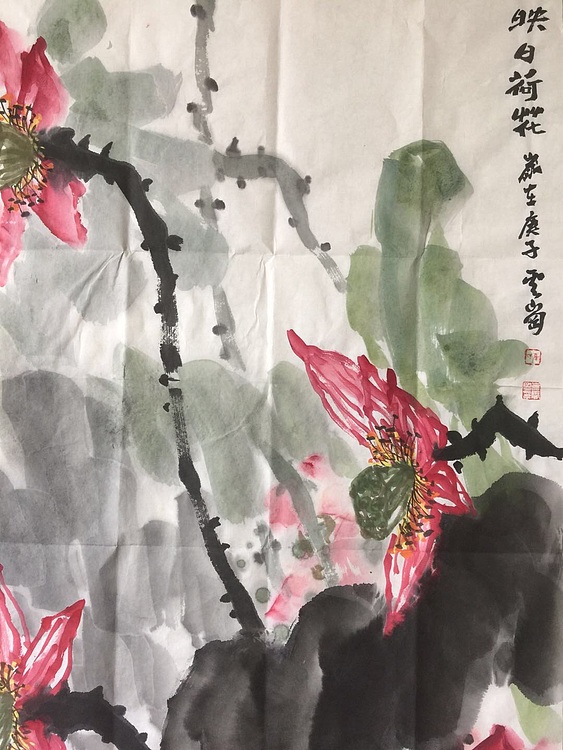 映日荷花 歲在庚子 雲崗